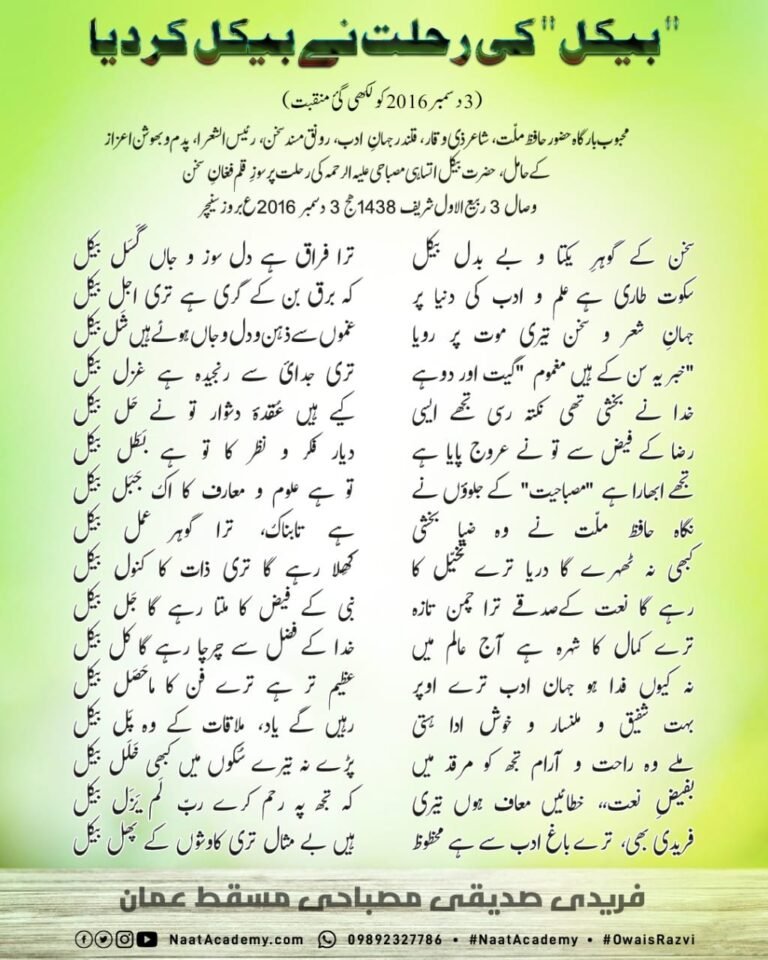 "بیکل" کی رحلت نے بیکل کر دیا
(3 دسمبر 2016 کو لکھی گئی منقبت)
محبوب بارگاہ حضور حافظ ملّت، شاعر ذی وقار، قلندر جہانِ ادب، رونق مسند سخن، رئیس الشعرا، پدم و بھوشن اعزاز
کے حامل، حضرت بیکل اتساہی مصباحی علیہ الرحمہ کی رحلت پر سوزِ قلم فغانِ سخن
وصال 3 ربیع الاول شریف 1438 ھج 3 دسمبر 2016ع بروز سنیچر
سخن کے گوہرِ یکتا و بے بدل بیکل ترا فراق ہے دل سوز و جاں گسَل بیکل
سکوت طاری ہے علم و ادب کی دنیا پر کہ برق بن کے گری ہے تری اجل بیکل
جہانِ شعر و سخن تیری موت پر رویا غموں سے ذہن و دل و جاں ہوئے ہیں شَل بیکل
"خبر یہ سن کے ہیں مغموم "گیت اور دوہے تری جدائی سے رنجیدہ ہے غزل بیکل
خدا نے بخشی تھی نکتہ رسی تجھے ایسی کیے ہیں عُقدۂ دشوار تو نے حَل بیکل
رضا کے فیض سے تو نے عروج پایا ہے دیار فکر و نظر کا تو ہے بَطَل بیکل
تجھے ابھارا ہے "مصباحیت" کے جلوؤں نے تو ہے علوم و معارف کا اک جَبَل بیکل
نگاہ حافظ ملّت نے وہ ضیا بخشی ہے تابناک، ترا گوہر عمل بیکل
کبھی نہ ٹھہرے گا دریا ترے تخیّل کا کھِلا رہے گا تری ذات کا کنول بیکل
رہے گا نعت کے صدقے ترا چمن تازہ نبی کے فیض کا ملتا رہے گا جَل بیکل
ترے کمال کا شہرہ ہے آج عالم میں خدا کے فضل سے چرچا رہے گا کل بیکل
نہ کیوں فدا ہو جہان ادب ترے اوپر عظیم تر ہے ترے فن کا ماحَصَل بیکل
بہت شفیق و ملنسار و خوش ادا ہستی رہیں گے یاد، ملاقات کے وہ پَل بیکل
ملے وہ راحت و آرام تجھ کو مرقد میں پڑے نہ تیرے سُکوں میں کبھی خَلَل بیکل
بفیضِ نعت،، خطائیں معاف ہوں تیری کہ تجھ پہ رحم کرے ربّ لَم یَزَل بیکل
فریدی بھی، ترے باغِ ادب سے ہے محظوظ ہیں بے مثال تری کاوشوں کے پھل بیکل
فریدی صدیقی مصباحی مسقط عمان
NaatAcademy.com 09892327786 • #NaatAcademy • #OwaisRazvi